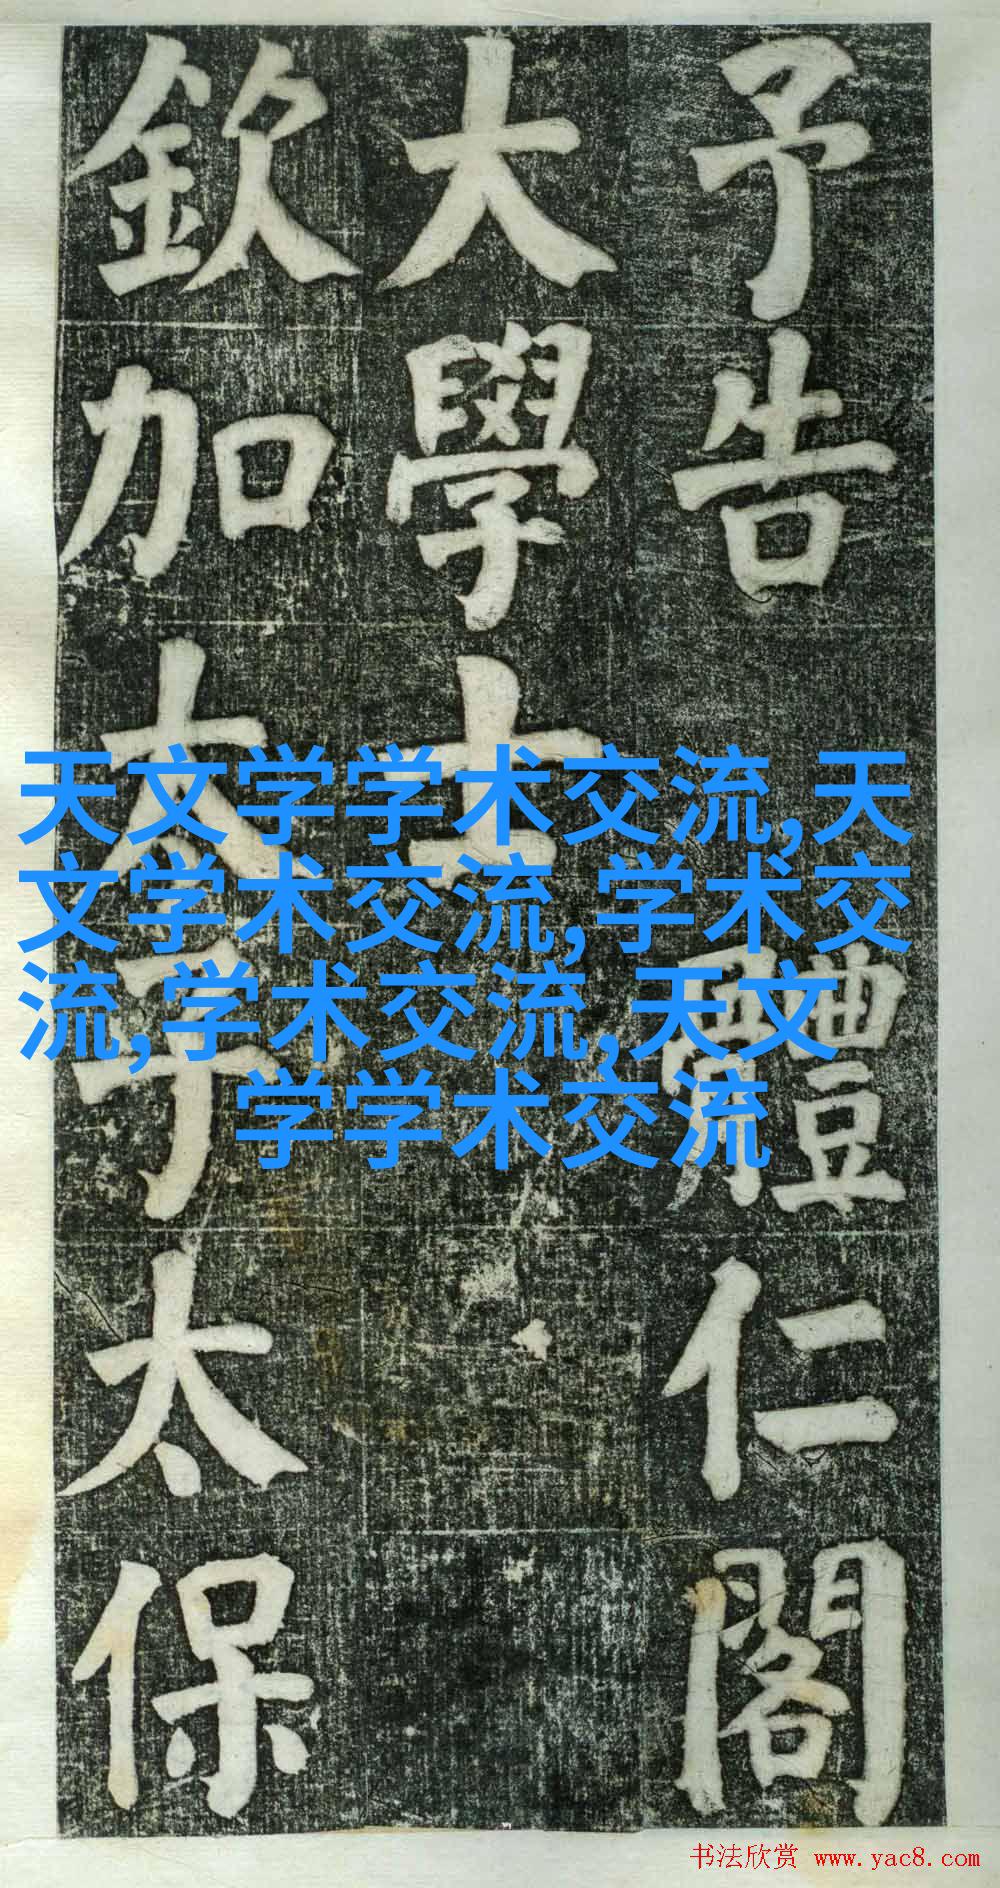 予告
體仁閣
大學士
欽加太子太保
天文学学术交流,天
文学术交流,学术交
流,学术交流,天文
学学术交流
书法欣赏 www.yac8.com